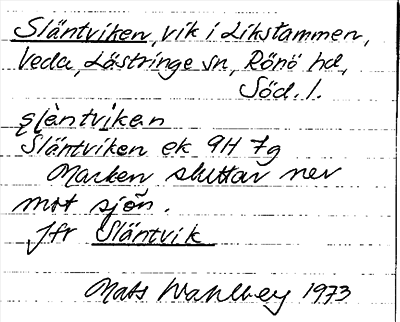 Släntviken, vik i Likstammen,
Veda, Lästringe sn, Rönö hd,
Söd. l.
Släntviken ek 9H 7g
Marken sluttar ner
mot sjön.
Jfr Släntvik
Mats Wahlberg 1973